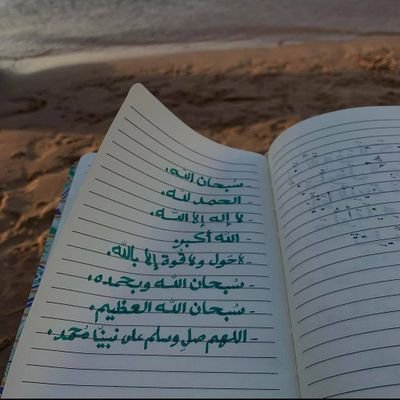 - سُبحان الله.
- الحمد لله.
- لا إله إلا الله.
- الله أكبر.
- لاحَول ولا قُوة إلا بالله.
- سُبحان الله وبحمده.
- سُبحان الله العظيم.
- اللهم صلِ وسلم على نبيّنا مُحمّد.